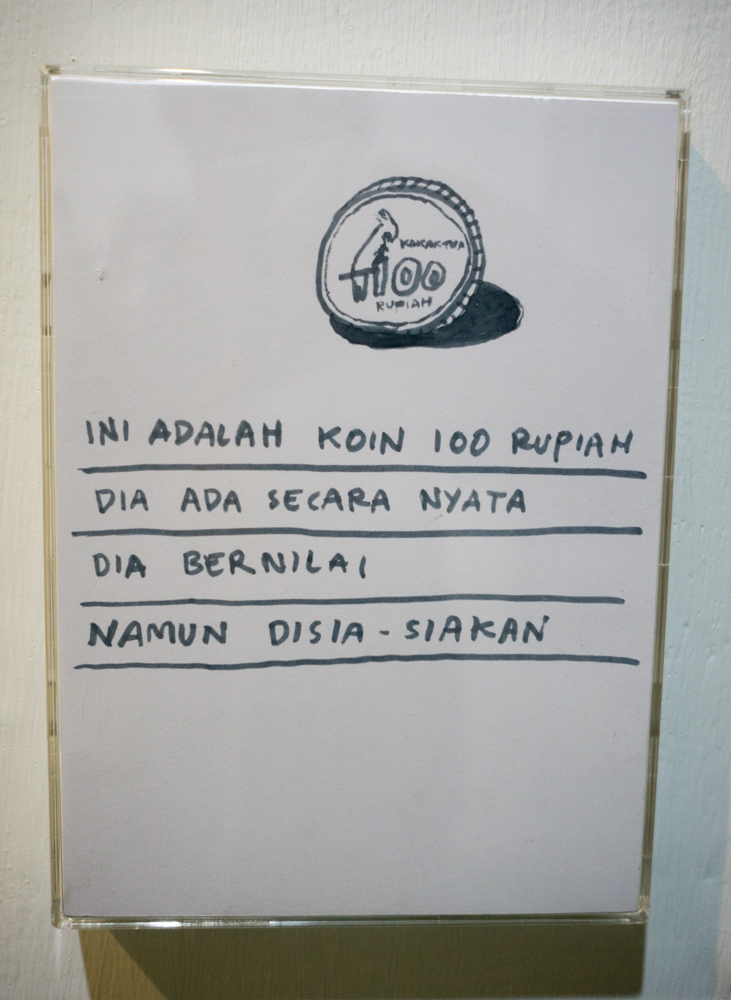 KAKAKTUA
100
RUPIAH
INI ADALAH KOIN 100 RUPIAH
DIA ADA SECARA NYATA
DIA BERNILAI
NAMUN DISIA-SIAKAN